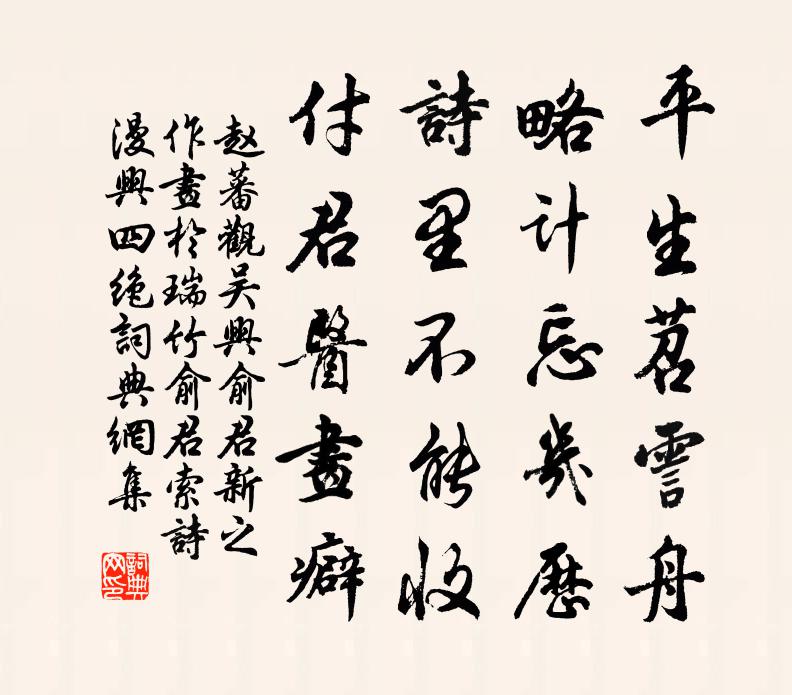 平生苕霅舟
略计忘幾歷
詩里不能收
付君醫畫癖
赵蕃觀吴興俞君新之
作畫於瑞竹俞君索詩
漫興四绝詞典網集
詞典网印